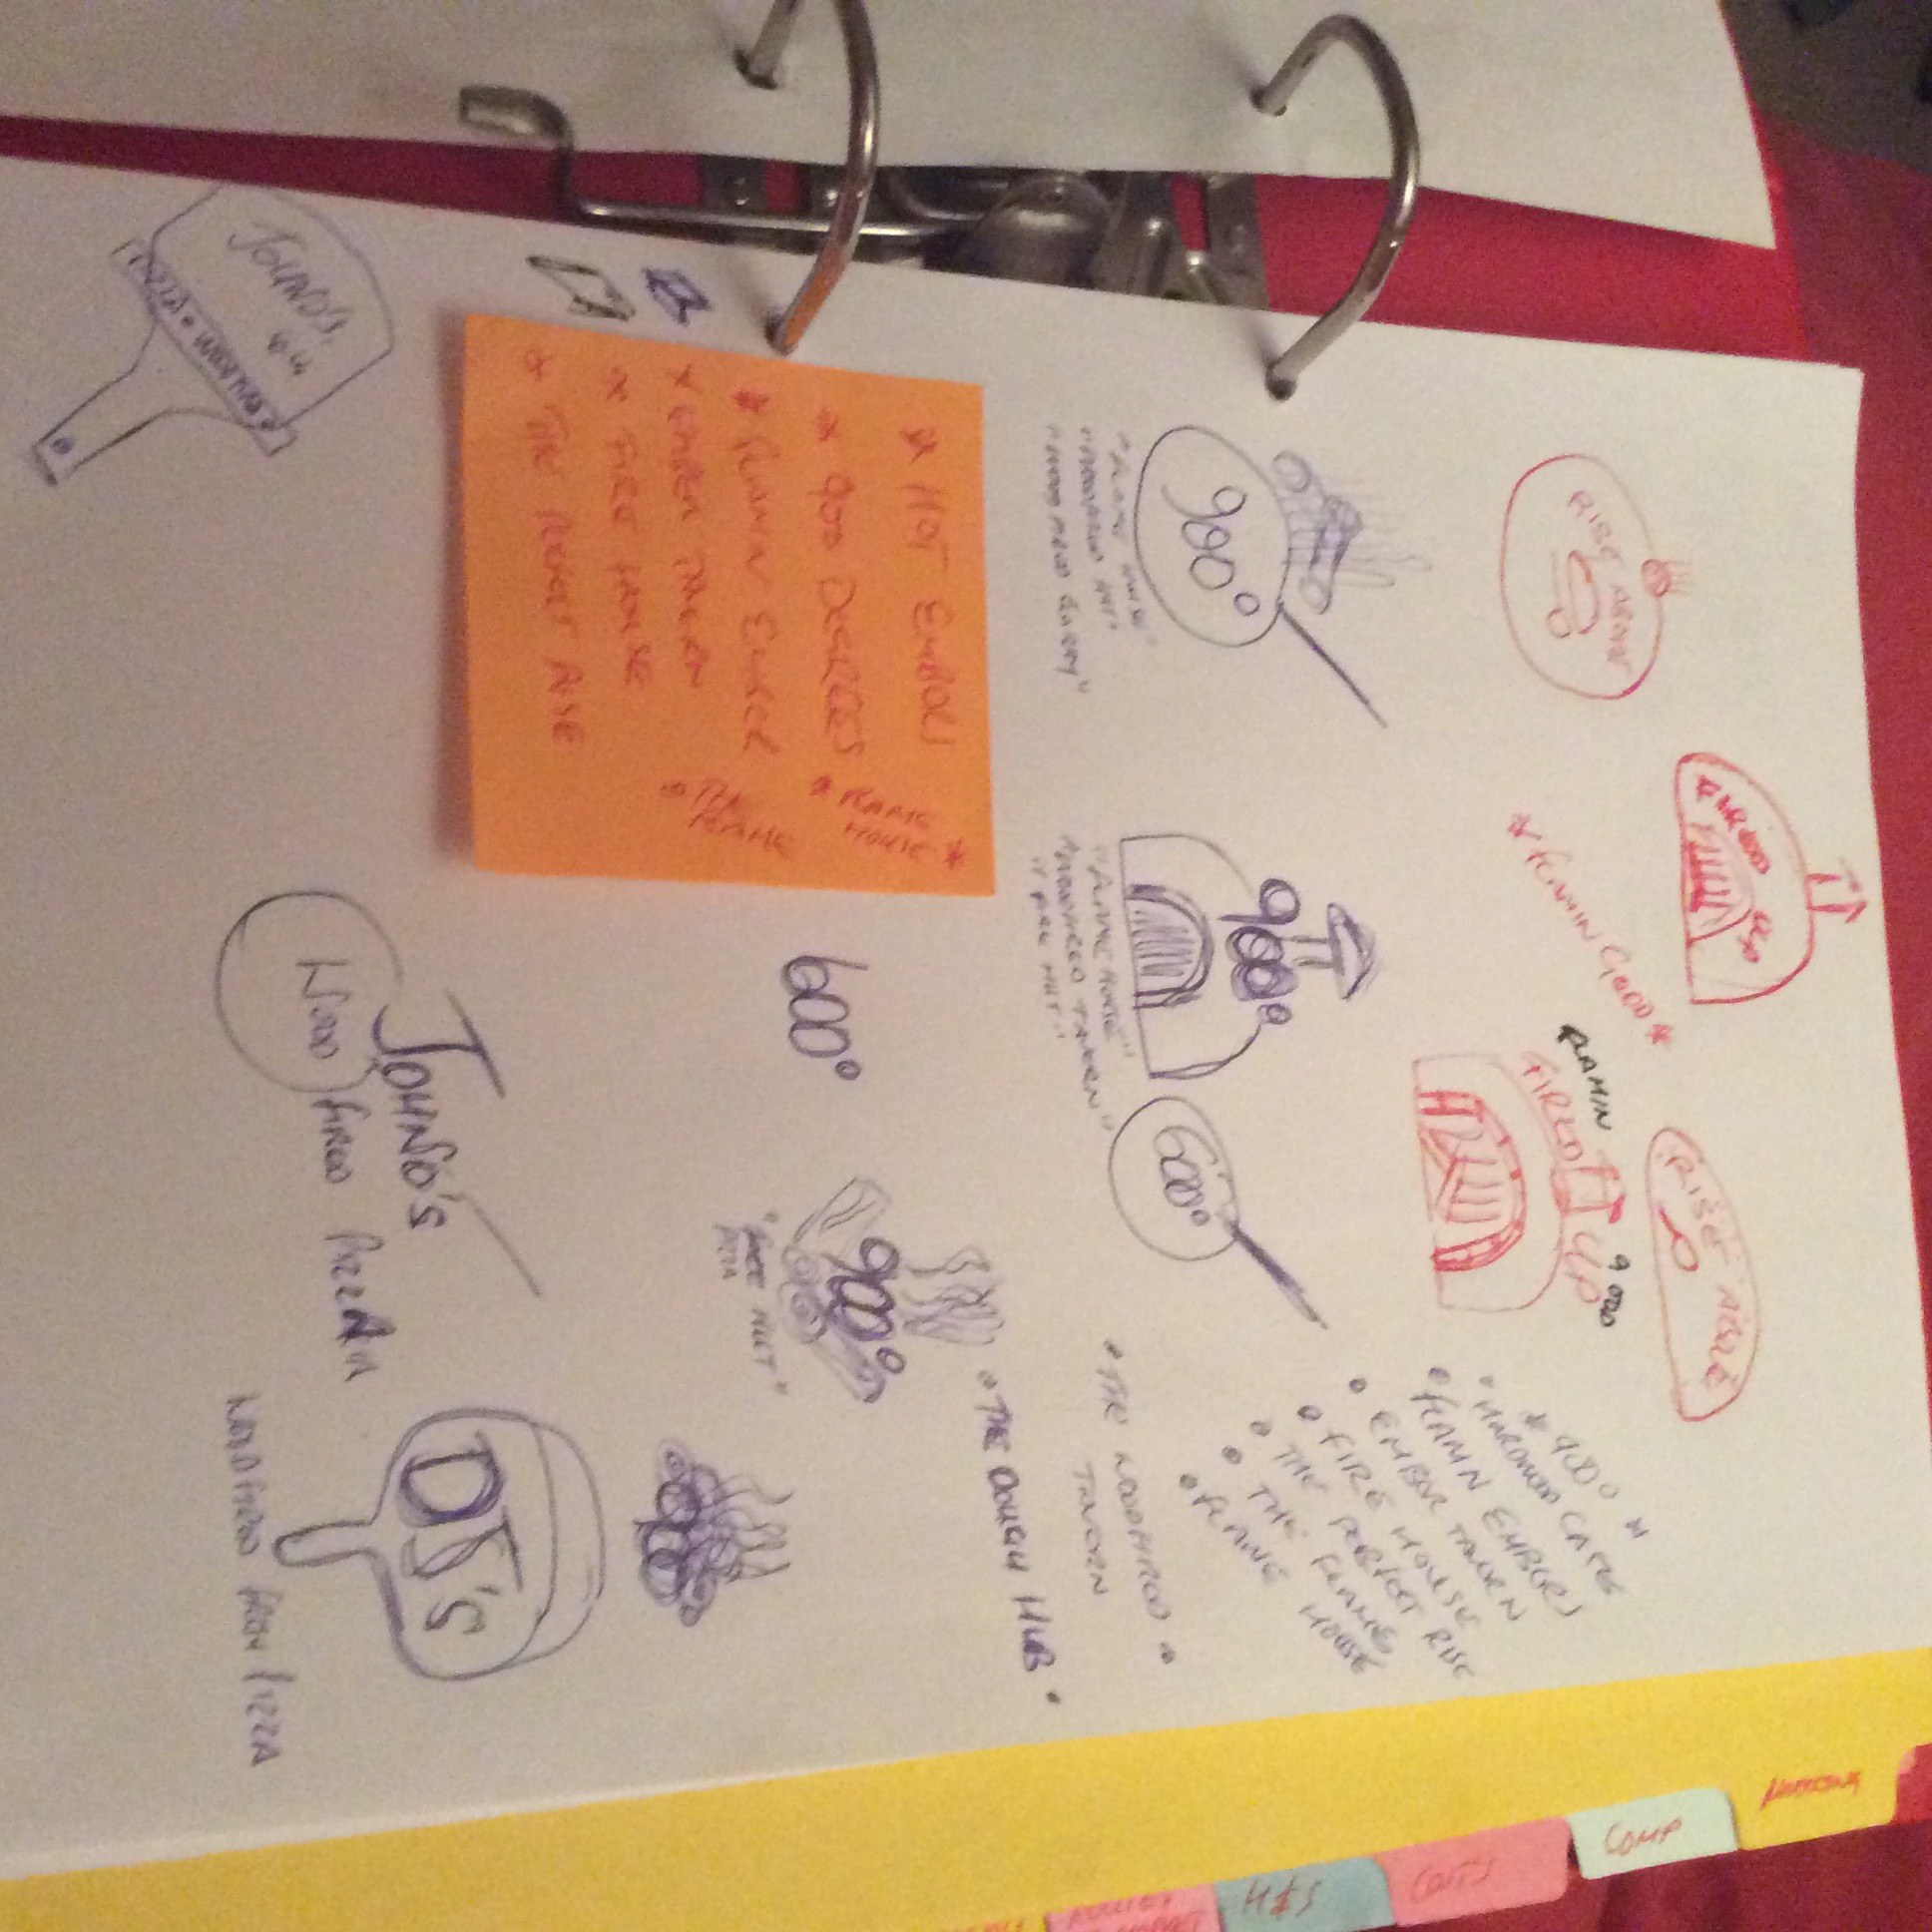 FIRED UP
RISE ABOVE
RISE ABOVE
* FLAMIN GOOD *
FLAMIN GOOD
FIRED UP
* 900° *
• HARDWOOD CAFE
• FLAMIN EMBERS
• EMBER TAVERN
• FIRE HOUSE
• THE PERFECT RISE
• THE FLAME
• FLAME HOUSE
900°
"FLAME HOUSE"
"WOODFIRED HUT"
"WOODFIRED
900°
"FLAMEHOUSE"
"WOODFIRED TAVERN"
"FIRE HUT"
600°
• THE WOODFIRED •
TAVERN
• THE DOUGH HUB •
* HOT EMBERS
* 900 DEGREES
* FLAMIN EMBER
* EMBER TAVERN
* FIRE HOUSE
* THE PERFECT RISE
* FLAME
HOUSE *
• THE
FLAME
600°
900°
HUT"
PIZZA
900
JOHNO'S
WOOD FIRED PIZZERIA
DJ'S
WOODFIRED PIZZA
JOHNO'S
PIZZA •
COMP
COSTS
H&S